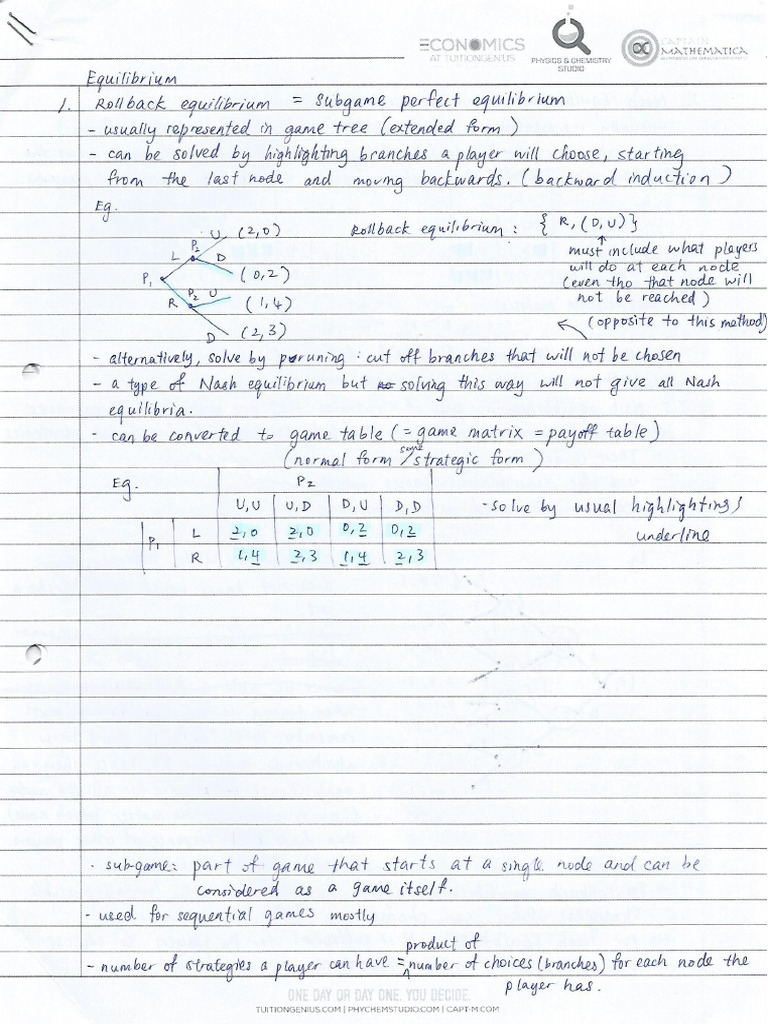 ECONOMICS
AT TUITIONGENIUS
PHYSICS & CHEMISTRY
STUDIO
CAPTAIN
MATHEMATICA
Equilibrium
1. Rollback equilibrium = subgame perfect equilibrium
- usually represented in game tree (extended form)
- can be solved by highlighting branches a player will choose, starting
from the last node and moving backwards. (backward induction)
Eg.
U (2,0)
P2
L D
P1 (0,2)
P2 U (1,4)
R
D (2,3)
Rollback equilibrium: { R, (D,U)}
must include what players
will do at each node
(even tho that node will
not be reached)
(opposite to this method)
- alternatively, solve by pruning : cut off branches that will not be chosen
- a type of Nash equilibrium but solving this way will not give all Nash
equilibria.
- can be converted to game table (= game matrix = payoff table)
(normal form / same strategic form)
Eg. P2
U,U U,D D,U D,D
P1 L 2,0 2,0 0,2 0,2
R 1,4 2,3 1,4 2,3
- solve by usual highlighting /
underline
- sub-game: part of game that starts at a single node and can be
considered as a game itself.
- used for sequential games mostly
product of
- number of strategies a player can have = number of choices (branches) for each node the
player has.
ONE DAY OR DAY ONE. YOU DECIDE.
TUITIONGENIUS.COM | PHYCHEMSTUDIO.COM | CAPT-M.COM